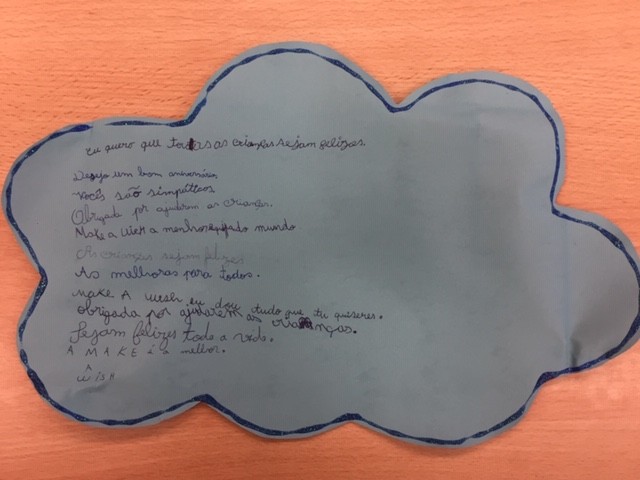 Eu quero que todas as crianças sejam felizes.
Desejo um bom aniversário
Vocês são simpáticos
Obrigada por ajudarem as crianças.
Make a Wich a menhor equipa do mundo
As crianças sejam felizes
As melhoras para todos.
Make A Wesh eu dou tudo que tu quiseres.
obrigada por ajudarem as crianças.
Sejam felizes toda a vida.
A MAKE é a melhor.
A